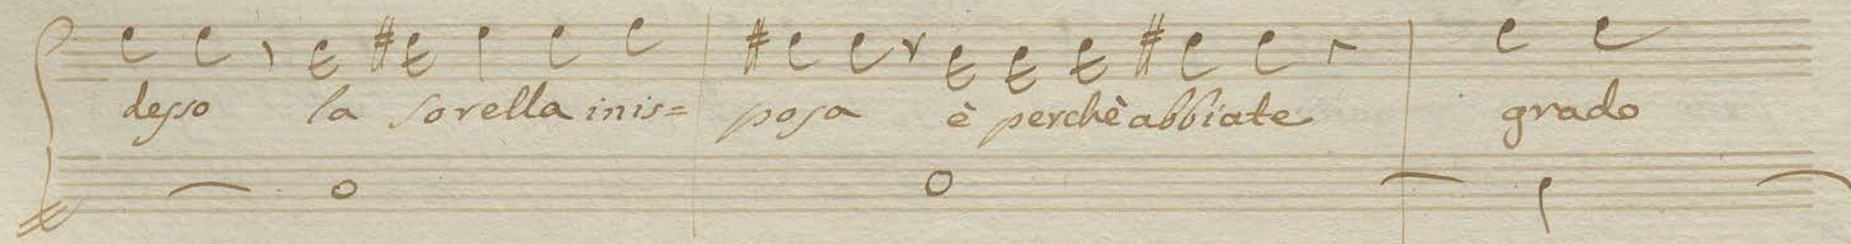 desso la sorella inis= posa è perchè abbiate grado